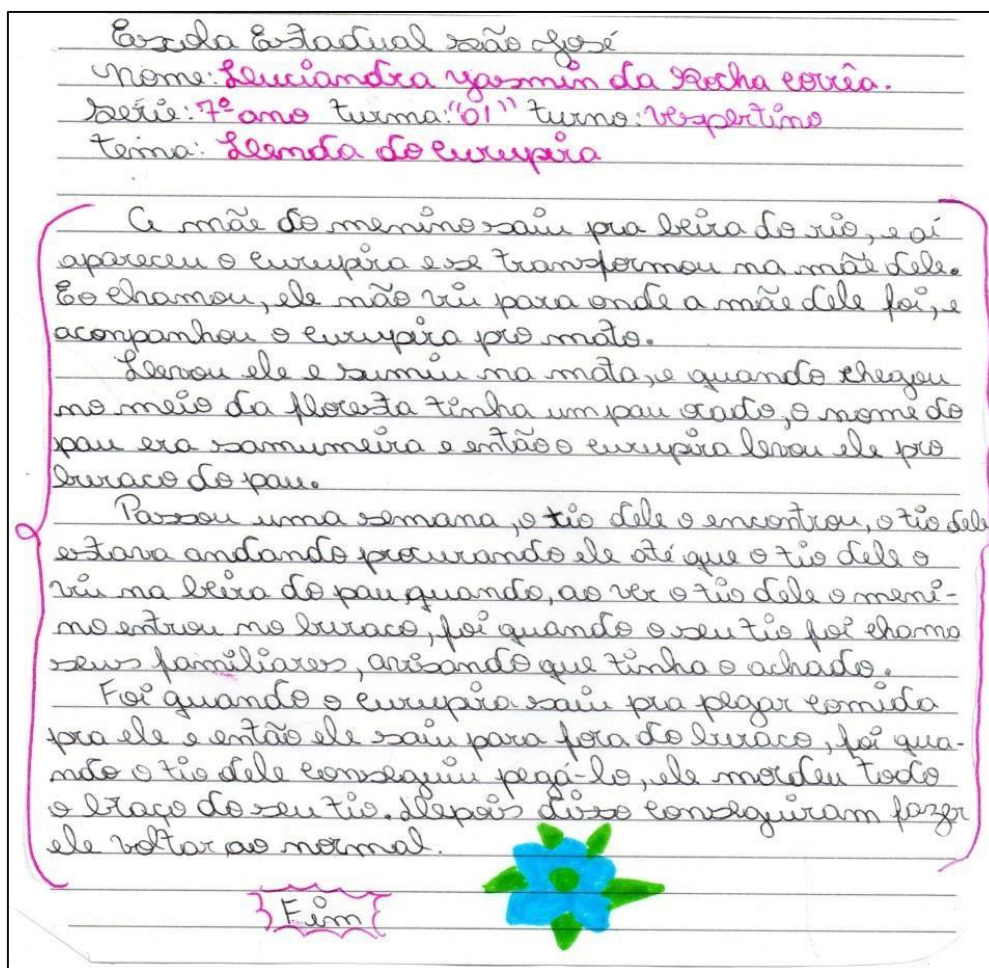 Escola Estadual são José
Nome: Leuciandra yasmin da Rocha corrêa.
Série: 7º ano turma: "01" turno: vespertino
tema: Lenda do curupira
A mãe do menino saiu pra beira do rio, e aí
apareceu o curupira e se transformou na mãe dele.
E o chamou, ele não viu para onde a mãe dele foi, e
aconpanhou o curupira pro mato.
Levou ele e sumiu na mata, e quando chegou
no meio da floresta tinha um pau orado, o nome do
pau era samumeira e então o curupira levou ele pro
buraco do pau.
Passou uma semana, o tio dele o encontrou, o tio dele
estava andando procurando ele até que o tio dele o
viu na beira do pau quando, ao ver o tio dele o meni-
no entrou no buraco, foi quando o seu tio foi chama
seus familiares, avisando que tinha o achado.
Foi quando o curupira saiu pra pegar comida
pra ele e então ele saiu para fora do buraco, foi qua-
ndo o tio dele conseguiu pegá-lo, ele mordeu todo
o braço do seu tio. Depois disso conseguiram fazer
ele voltar ao normal.
Fim